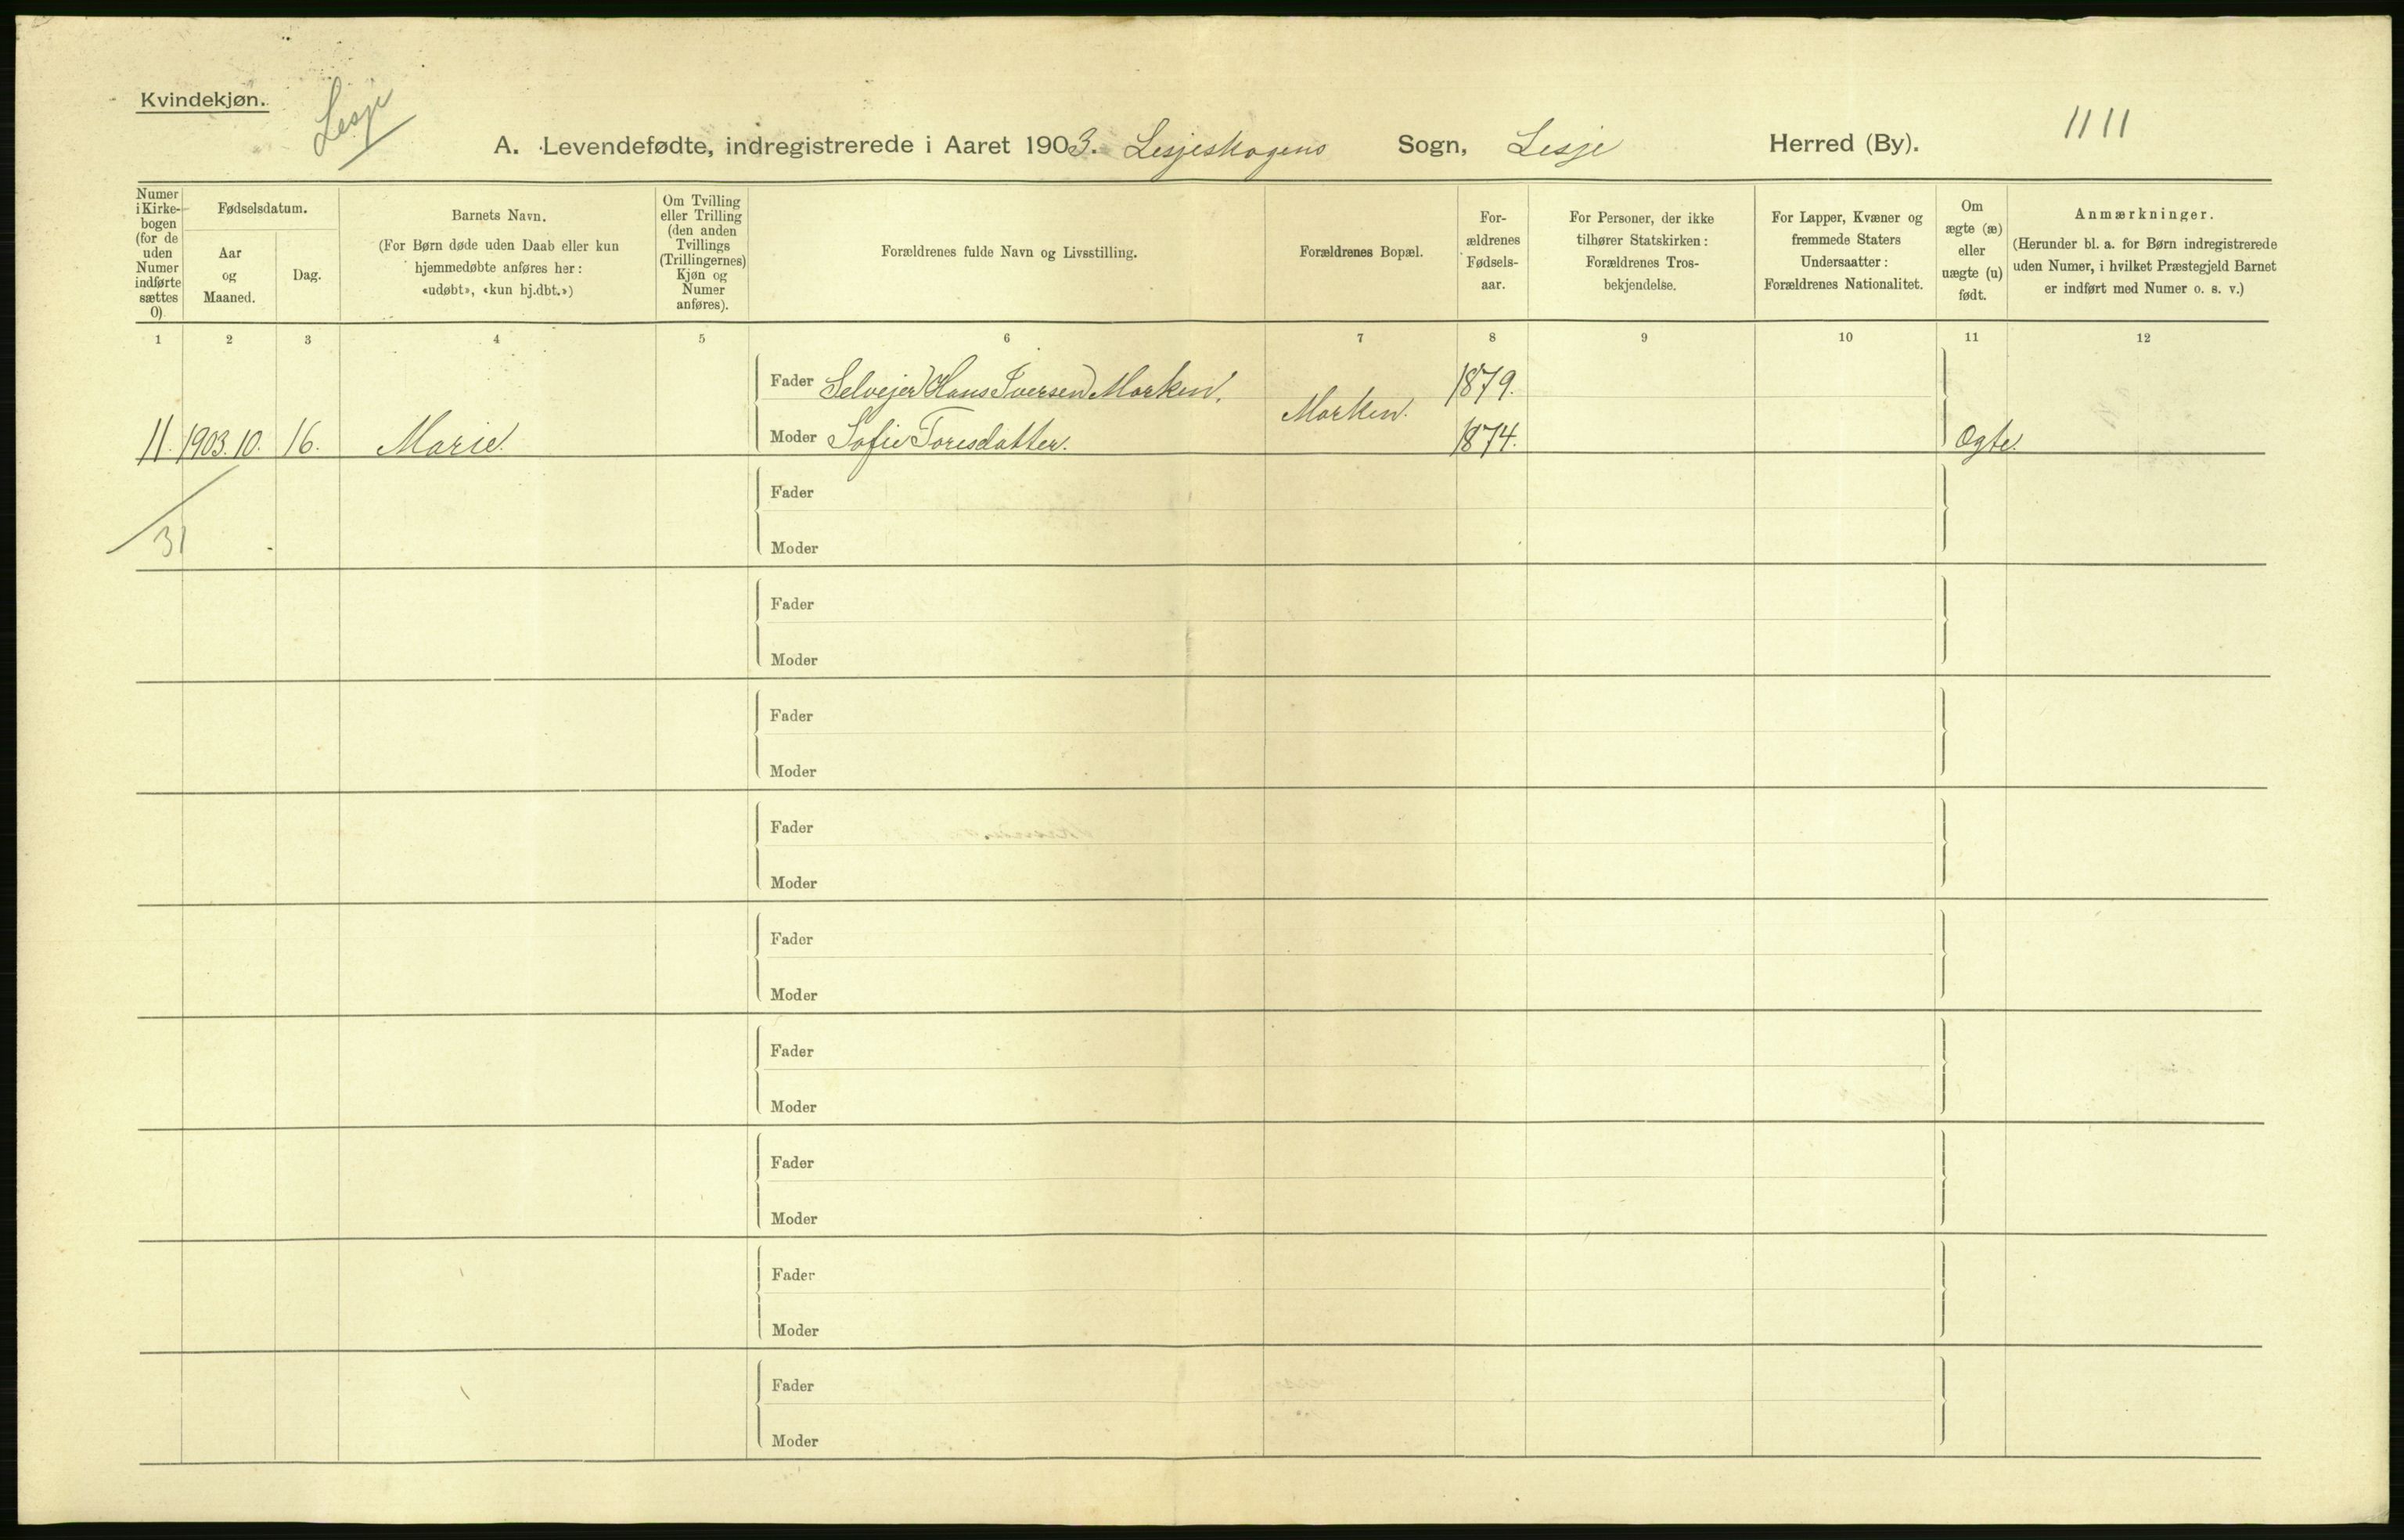 Kvindekjøn.
Lesje
1111
A. Levendefødte, indregistrerede i Aaret 1903. Lesjeskogens Sogn, Lesje Herred (By).
Numer i Kirkebogen (for de uden Numer indførte sættes 0)
Fødselsdatum.
Aar og Maaned.
Dag.
Barnets Navn.
(For Børn døde uden Daab eller kun hjemmedøbte anføres her: «udøbt», «kun hj.dbt.»)
Om Tvilling eller Trilling (den anden Tvillings (Trillingernes) Kjøn og Numer anføres).
Forældrenes fulde Navn og Livsstilling.
Forældrenes Bopæl.
For-ældrenes Fødsels-aar.
For Personer, der ikke tilhører Statskirken: Forældrenes Tros-bekjendelse.
For Lapper, Kvæner og fremmede Staters Undersaatter: Forældrenes Nationalitet.
Om ægte (æ) eller uægte (u) født.
Anmærkninger.
(Herunder bl. a. for Børn indregistrerede uden Numer, i hvilket Præstegjeld Barnet er indført med Numer o. s. v.)
1 2 3 4 5 6 7 8 9 10 11 12
Fader Selvejer Hans Iversen Morken. 1879.
Morken.
11. 1903. 10. 16. Marie. Moder Sofie Toresdatter. 1874. Ægte.
Fader
31
Moder
Fader
Moder
Fader
Moder
Fader
Moder
Fader
Moder
Fader
Moder
Fader
Moder
Fader
Moder
Fader
Moder